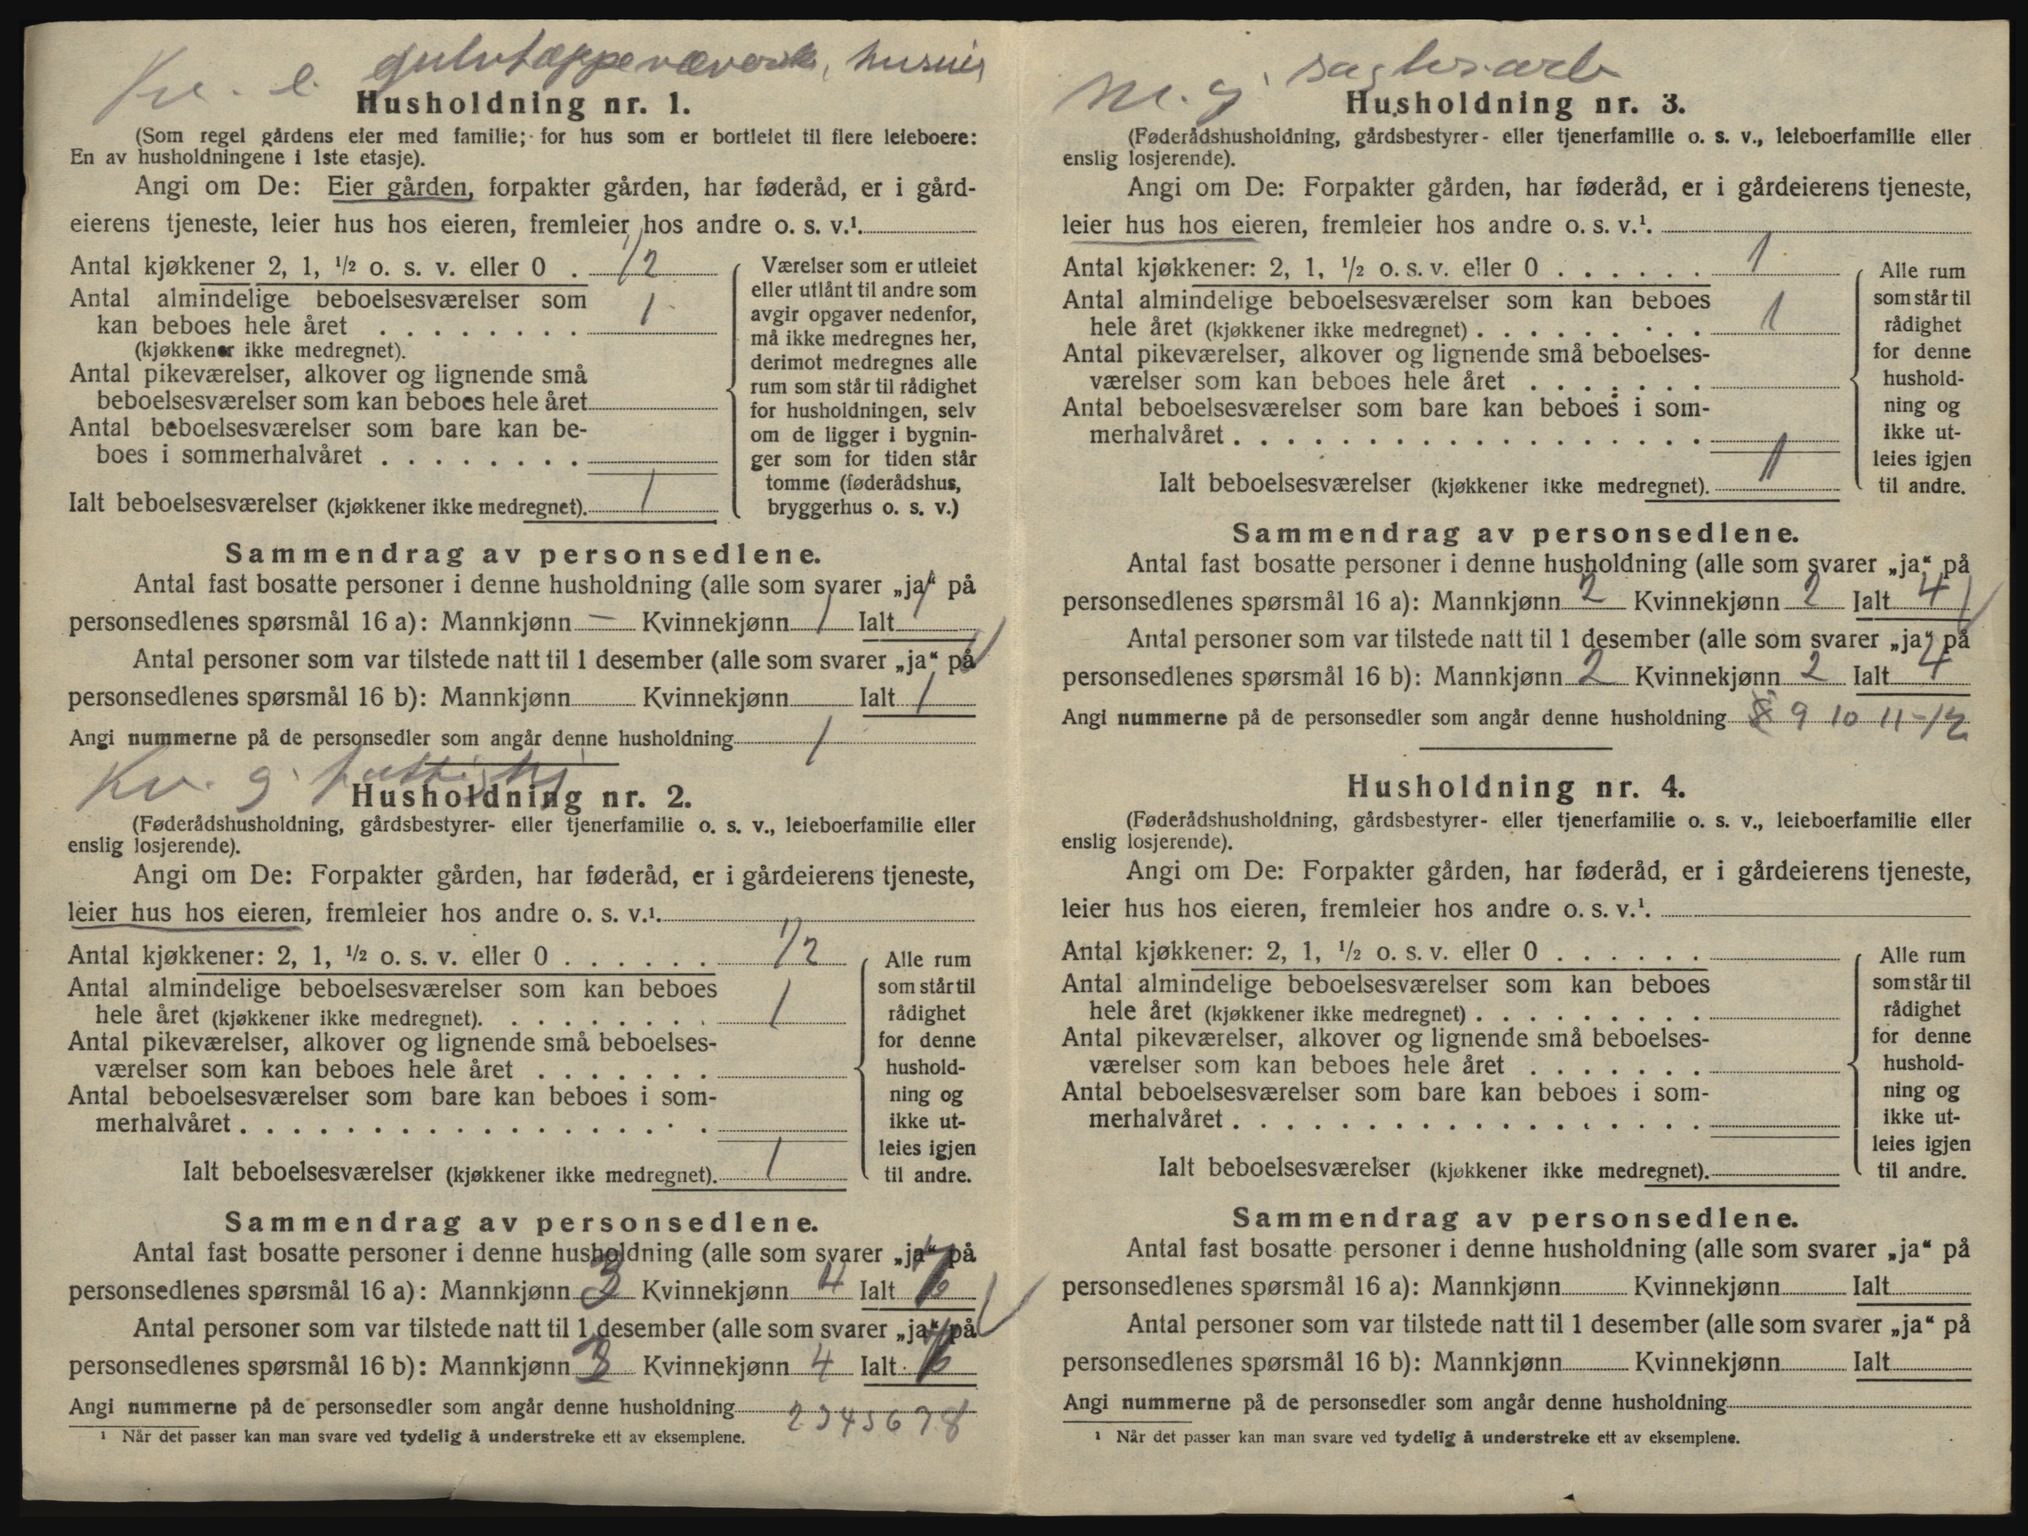 Kv. e. gulvtæppeværersk, huseier
Husholdning nr. 1.
(Som regel gårdens eier med familie; for hus som er bortleiet til flere leieboere:
En av husholdningene i 1ste etasje).
Angi om De: Eier gården, forpakter gården, har føderåd, er i gård-
eierens tjeneste, leier hus hos eieren, fremleier hos andre o. s. v.¹.
Antal kjøkkener 2, 1, ½ o. s. v. eller 0 . 1/2
Antal almindelige beboelsesværelser som
kan beboes hele året . . . . . . . . 1
(kjøkkener ikke medregnet).
Antal pikeværelser, alkover og lignende små
beboelsesværelser som kan beboes hele året
Antal beboelsesværelser som bare kan be-
boes i sommerhalvåret . . . . . . . .
Ialt beboelsesværelser (kjøkkener ikke medregnet). 1
Værelser som er utleiet
eller utlånt til andre som
avgir opgaver nedenfor,
må ikke medregnes her,
derimot medregnes alle
rum som står til rådighet
for husholdningen, selv
om de ligger i bygnin-
ger som for tiden står
tomme (føderådshus,
bryggerhus o. s. v.)
Sammendrag av personsedlene.
Antal fast bosatte personer i denne husholdning (alle som svarer „ja“ på
personsedlenes spørsmål 16 a): Mannkjønn — Kvinnekjønn 1 Ialt 1
Antal personer som var tilstede natt til 1 desember (alle som svarer „ja“ på
personsedlenes spørsmål 16 b): Mannkjønn Kvinnekjønn Ialt 1
Angi nummerne på de personsedler som angår denne husholdning 1
Kv. g.
Husholdning nr. 2.
(Føderådshusholdning, gårdsbestyrer- eller tjenerfamilie o. s. v., leieboerfamilie eller
enslig losjerende).
Angi om De: Forpakter gården, har føderåd, er i gårdeierens tjeneste,
leier hus hos eieren, fremleier hos andre o. s. v.¹.
Antal kjøkkener: 2, 1, ½ o. s. v. eller 0 . . . . . . 1/2
Antal almindelige beboelsesværelser som kan beboes
hele året (kjøkkener ikke medregnet). . . . . . . . . 1
Antal pikeværelser, alkover og lignende små beboelses-
værelser som kan beboes hele året . . . . . . .
Antal beboelsesværelser som bare kan beboes i som-
merhalvåret . . . . . . . . . . . . . . . . . .
Ialt beboelsesværelser (kjøkkener ikke medregnet). 1
Alle rum
som står til
rådighet
for denne
hushold-
ning og
ikke ut-
leies igjen
til andre.
Sammendrag av personsedlene.
Antal fast bosatte personer i denne husholdning (alle som svarer „ja“ på
personsedlenes spørsmål 16 a): Mannkjønn 3 Kvinnekjønn 4 Ialt 7
Antal personer som var tilstede natt til 1 desember (alle som svarer „ja“ på
personsedlenes spørsmål 16 b): Mannkjønn 3 Kvinnekjønn 4 Ialt 7
Angi nummerne på de personsedler som angår denne husholdning 2 3 4 5 6 7 8
¹ Når det passer kan man svare ved tydelig å understreke ett av eksemplene.
M. g. sagbr.arb
Husholdning nr. 3.
(Føderådshusholdning, gårdsbestyrer- eller tjenerfamilie o. s. v., leieboerfamilie eller
enslig losjerende).
Angi om De: Forpakter gården, har føderåd, er i gårdeierens tjeneste,
leier hus hos eieren, fremleier hos andre o. s. v.¹.
Antal kjøkkener: 2, 1, ½ o. s. v. eller 0 . . . . . . 1
Antal almindelige beboelsesværelser som kan beboes
hele året (kjøkkener ikke medregnet) . . . . . . . . . 1
Antal pikeværelser, alkover og lignende små beboelses-
værelser som kan beboes hele året . . . . . . .
Antal beboelsesværelser som bare kan beboes i som-
merhalvåret . . . . . . . . . . . . . . . . . .
Ialt beboelsesværelser (kjøkkener ikke medregnet). 1
Alle rum
som står til
rådighet
for denne
hushold-
ning og
ikke ut-
leies igjen
til andre.
Sammendrag av personsedlene.
Antal fast bosatte personer i denne husholdning (alle som svarer „ja“ på
personsedlenes spørsmål 16 a): Mannkjønn 2 Kvinnekjønn 2 Ialt 4
Antal personer som var tilstede natt til 1 desember (alle som svarer „ja“ på
personsedlenes spørsmål 16 b): Mannkjønn 2 Kvinnekjønn 2 Ialt 4
Angi nummerne på de personsedler som angår denne husholdning 8 9 10 11-12
Husholdning nr. 4.
(Føderådshusholdning, gårdsbestyrer- eller tjenerfamilie o. s. v., leieboerfamilie eller
enslig losjerende).
Angi om De: Forpakter gården, har føderåd, er i gårdeierens tjeneste,
leier hus hos eieren, fremleier hos andre o. s. v.¹.
Antal kjøkkener: 2, 1, ½ o. s. v. eller 0 . . . . . .
Antal almindelige beboelsesværelser som kan beboes
hele året (kjøkkener ikke medregnet) . . . . . . . . .
Antal pikeværelser, alkover og lignende små beboelses-
værelser som kan beboes hele året . . . . . . .
Antal beboelsesværelser som bare kan beboes i som-
merhalvåret . . . . . . . . . . . . . . . . . .
Ialt beboelsesværelser (kjøkkener ikke medregnet).
Alle rum
som står til
rådighet
for denne
hushold-
ning og
ikke ut-
leies igjen
til andre.
Sammendrag av personsedlene.
Antal fast bosatte personer i denne husholdning (alle som svarer „ja“ på
personsedlenes spørsmål 16 a): Mannkjønn Kvinnekjønn Ialt
Antal personer som var tilstede natt til 1 desember (alle som svarer „ja“ på
personsedlenes spørsmål 16 b): Mannkjønn Kvinnekjønn Ialt
Angi nummerne på de personsedler som angår denne husholdning
¹ Når det passer kan man svare ved tydelig å understreke ett av eksemplene.